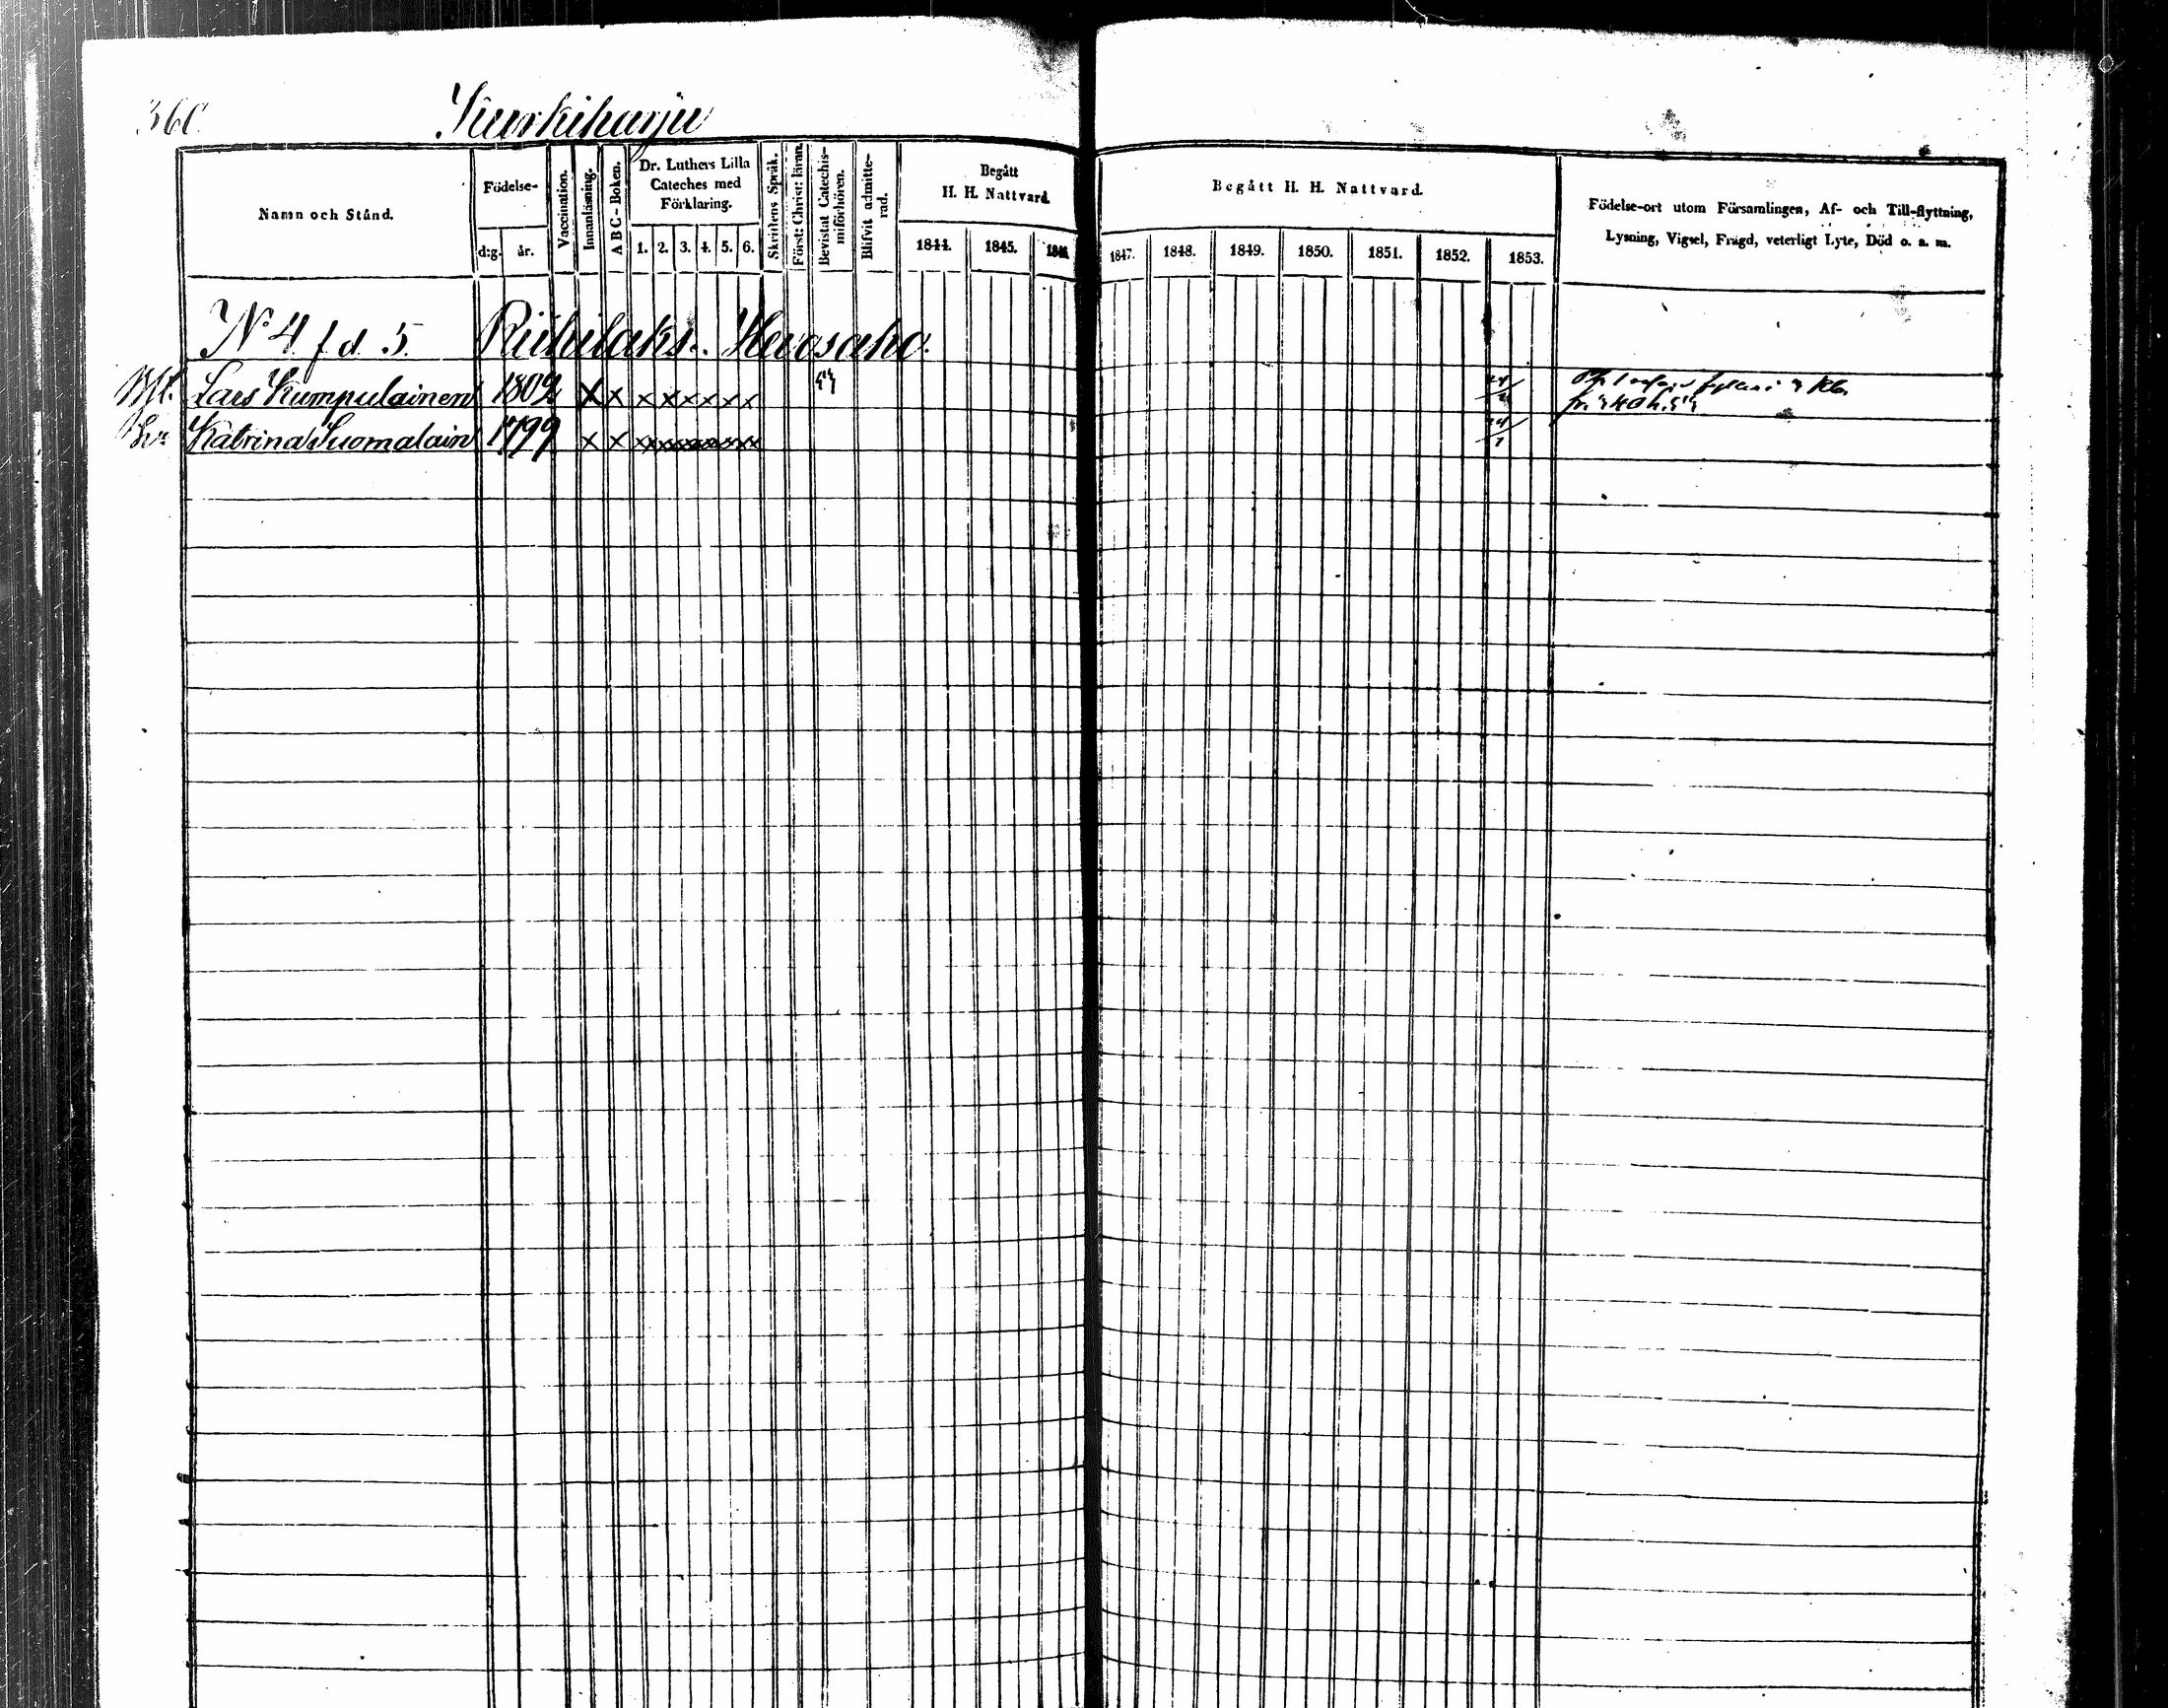 360. Kurkiharju
Namn och Stånd.
Födelse-
d:g. år.
Vaccination.
Innanläsning.
A B C - Boken.
Dr. Luthers Lilla
Cateches med
Förklaring.
1. 2. 3. 4. 5. 6.
Skriftens Språk.
Först: Christ: läran.
Bevistat Catechis-
miförhören.
Blifvit admitte-
rad.
Begått
H. H. Nattvard.
1844. 1845. 1846.
Begått H. H. Nattvard.
1847. 1848. 1849. 1850. 1851. 1852. 1853.
Födelse-ort utom Församlingen, Af- och Till-flyttning,
Lysning, Vigsel, Frägd, veterligt Lyte, Död o. s. m.
N° 4 f d. 5. Riihilaks. Hevosaho.
Lars Kumpulainen 1802 x x x x x x x x
Katrina Suomalain 1799 x x